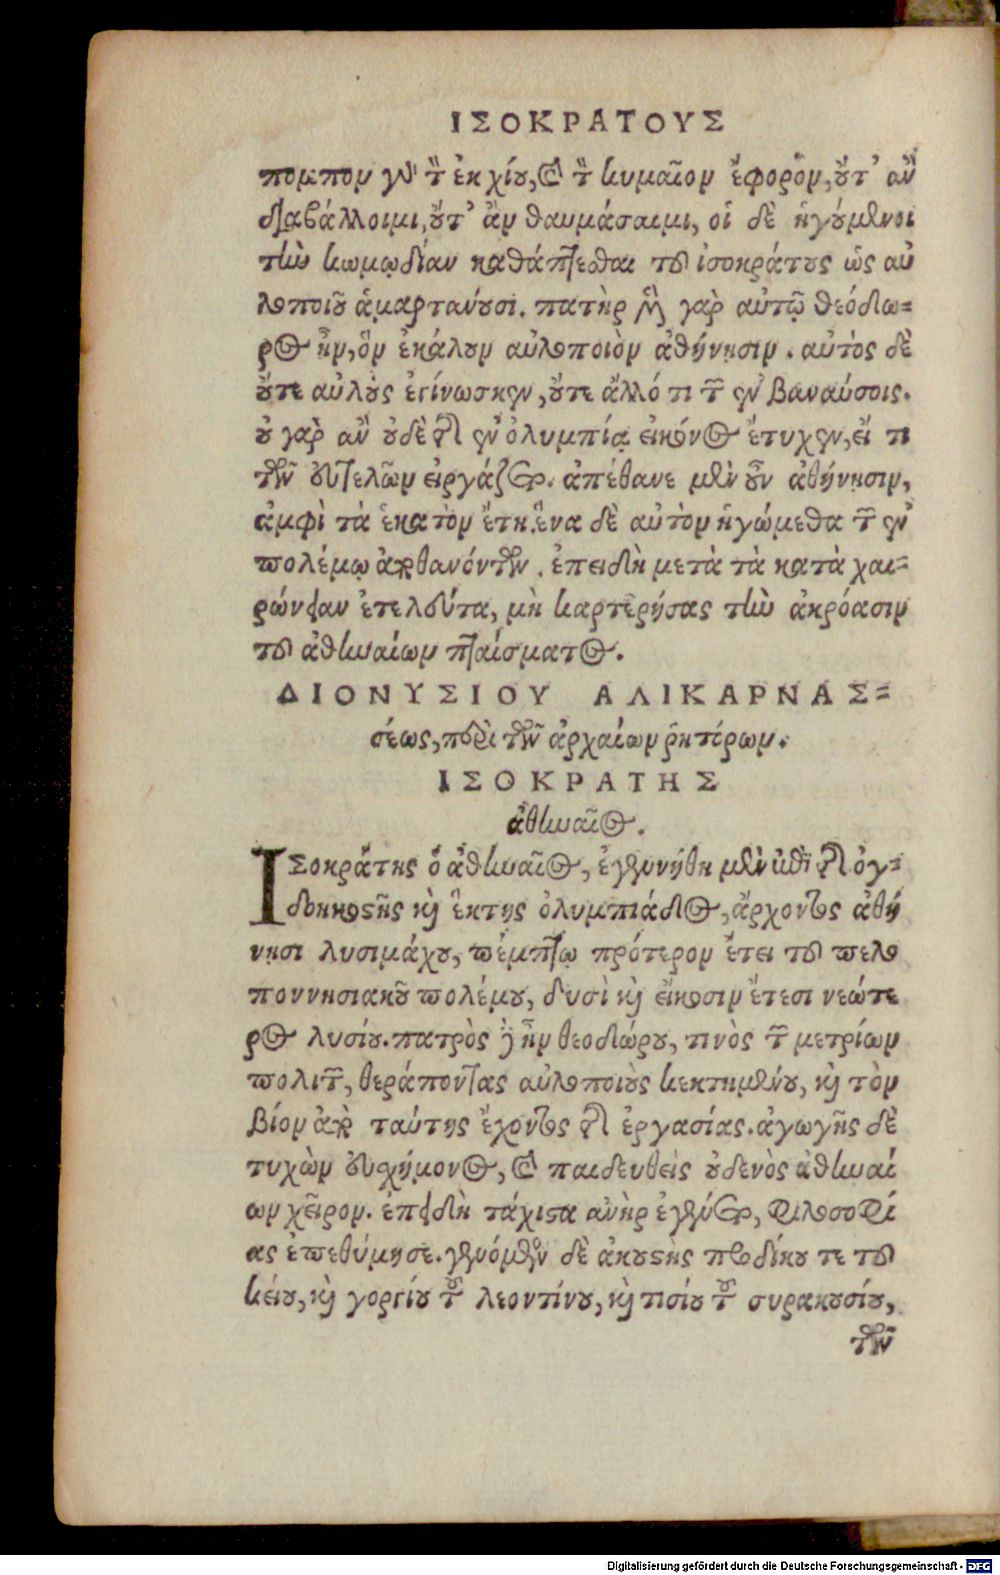 ΙΣΟΚΡΑΤΟΥΣ
πομπον γὰρ τὸν ἐκ χίου, καὶ τὸν κυμαῖον ἔφορον, οὔτ' ἂν
διαβάλλοιμι, οὔτ' ἂν θαυμάσαιμι, οἱ δὲ ἡγούμενοι
τὴν κωμῳδίαν καθάπτεσθαι τοῦ ἰσοκράτους ὡς αὐ
λοποιοῦ ἁμαρτάνουσι. πατὴρ μὲν γὰρ αὐτῷ θεόδω-
ρος ἦν, ὃν ἐκάλουν αὐλοποιὸν ἀθήνησιν. αὐτὸς δὲ
οὔτε αὐλοὺς ἐγίνωσκεν, οὔτε ἄλλό τι τῶν ἐν βαναύσοις.
οὐ γὰρ ἂν οὐδὲ τῆς ἐν ὀλυμπίᾳ εἰκόνος ἔτυχεν, εἴ τι
τῶν εὐτελῶν εἰργάζετο. ἀπέθανε μὲν οὖν ἀθήνησιν,
ἀμφὶ τὰ ἑκατὸν ἔτη. ἕνα δὲ αὐτὸν ἡγώμεθα τῶν ἐν
πολέμῳ ἀποθανόντων. ἐπειδὴ μετὰ τὰ κατὰ χαι-
ρώνειαν ἐτελεύτα, μὴ καρτερήσας τὴν ἀκρόασιν
τοῦ ἀθηναίων πταίσματος.
ΔΙΟΝΥΣΙΟΥ ΑΛΙΚΑΡΝΑΣ-
σέως, περὶ τῶν ἀρχαίων ῥητόρων.
ΙΣΟΚΡΑΤΗΣ
ἀθηναῖος.
ΙΣοκράτης ὁ ἀθηναῖος, ἐγεννήθη μὲν ἐπὶ τῆς ὀγ-
δοηκοστῆς καὶ ἕκτης ὀλυμπιάδος, ἄρχοντος ἀθή
νησι λυσιμάχου, πέμπτῳ πρότερον ἔτει τοῦ πελο
ποννησιακοῦ πολέμου, δυσὶ καὶ εἴκοσιν ἔτεσι νεώτε
ρος λυσίου. πατρὸς δὲ ἦν θεοδώρου, τινὸς τῶν μετρίων
πολιτῶν, θεράποντας αὐλοποιοὺς κεκτημένου, καὶ τὸν
βίον ἀπὸ ταύτης ἔχοντος τῆς ἐργασίας. ἀγωγῆς δὲ
τυχὼν εὐσχήμονος, καὶ παιδευθεὶς οὐδενὸς ἀθηναί
ων χεῖρον. ἐπειδὴ τάχιστα ἀνὴρ ἐγένετο, φιλοσοφί
ας ἐπεθύμησε. γενόμενος δὲ ἀκουστὴς προδίκου τε τοῦ
κείου, καὶ γοργίου τοῦ λεοντίνου, καὶ τισίου τοῦ συρακουσίου,
τῶν
Digitalisierung gefördert durch die Deutsche Forschungsgemeinschaft - DFG